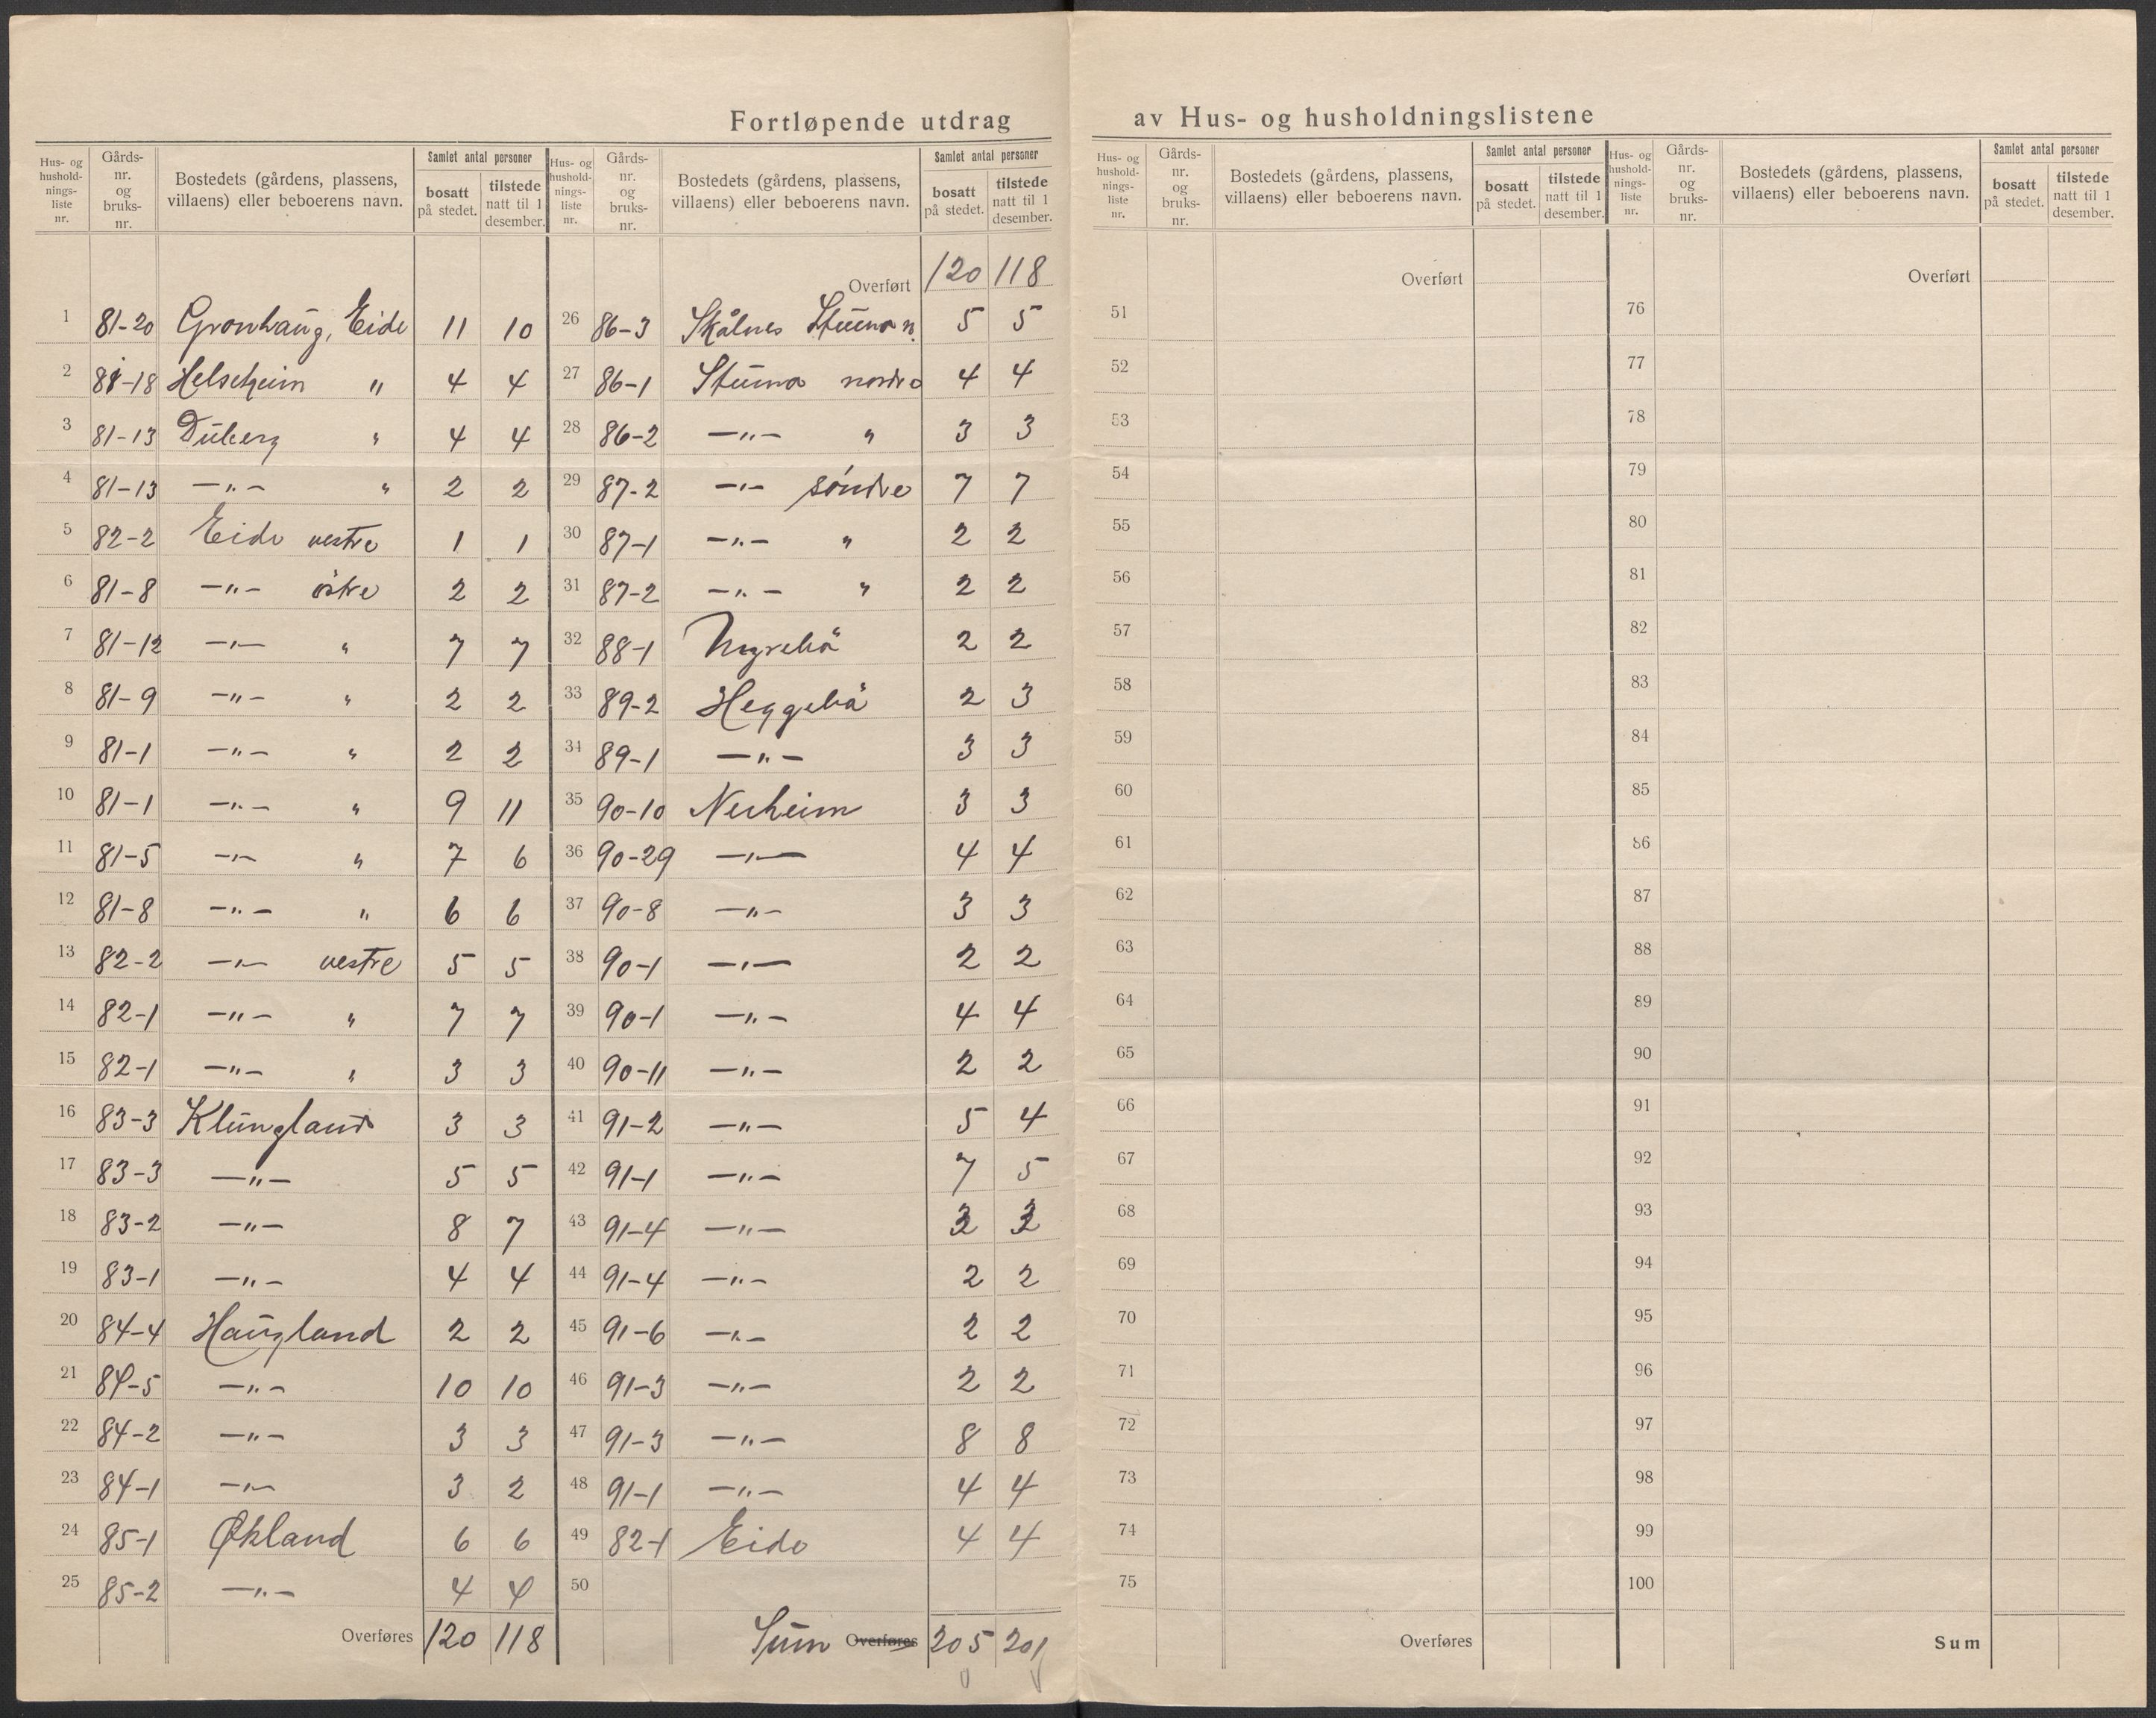 Fortløpende utdrag av Hus- og husholdningslistene
Hus- og hushold-nings-liste nr. Gårds-nr. og bruks-nr. Bostedets (gårdens, plassens, villaens) eller beboerens navn. Samlet antal personer bosatt på stedet. tilstede natt til 1 desember.
1 81-20 Gronhaug, Eide 11 10
2 81-18 Helseheim " 4 4
3 81-13 Duberg " 4 4
4 81-13 —"— " 2 2
5 82-2 Eide vestre 1 1
6 81-8 —"— östre 2 2
7 81-12 —"— " 7 7
8 81-9 —"— " 2 2
9 81-1 —"— " 2 2
10 81-1 —"— " 9 11
11 81-5 —"— " 7 6
12 81-8 —"— " 6 6
13 82-2 —"— vestre 5 5
14 82-1 —"— " 7 7
15 82-1 —"— " 3 3
16 83-3 Klungland 3 3
17 83-3 —"— 5 5
18 83-2 —"— 8 7
19 83-1 —"— 4 4
20 84-4 Haugland 2 2
21 84-5 —"— 10 10
22 84-2 —"— 3 3
23 84-1 —"— 3 2
24 85-1 Økland 6 6
25 85-2 —"— 4 4
Overføres 120 118
Hus- og hushold-nings-liste nr. Gårds-nr. og bruks-nr. Bostedets (gårdens, plassens, villaens) eller beboerens navn. Samlet antal personer bosatt på stedet. tilstede natt til 1 desember.
Overført 120 118
26 86-3 Skålnes Stumo n. 5 5
27 86-1 Stumo nordre 4 4
28 86-2 —"— " 3 3
29 87-2 —"— söndre 7 7
30 87-1 —"— " 2 2
31 87-2 —"— " 2 2
32 88-1 2 2
33 89-2 Heggebö 2 3
34 89-1 —"— 3 3
35 90-10 Nerheim 3 3
36 90-29 —"— 4 4
37 90-8 —"— 3 3
38 90-1 —"— 2 2
39 90-1 —"— 4 4
40 90-11 —"— 2 2
41 91-2 —"— 5 4
42 91-1 —"— 7 5
43 91-4 —"—
44 91-4 —"— 2 2
45 91-6 —"— 2 2
46 91-3 —"— 2 2
47 91-3 —"— 8 8
48 91-1 —"— 4 4
49 82-1 Eide 4 4
50
Sum Overføres 205 201
Hus- og hushold-nings-liste nr. Gårds-nr. og bruks-nr. Bostedets (gårdens, plassens, villaens) eller beboerens navn. Samlet antal personer bosatt på stedet. tilstede natt til 1 desember.
Overført
51
52
53
54
55
56
57
58
59
60
61
62
63
64
65
66
67
68
69
70
71
72
73
74
75
Overføres
Hus- og hushold-nings-liste nr. Gårds-nr. og bruks-nr. Bostedets (gårdens, plassens, villaens) eller beboerens navn. Samlet antal personer bosatt på stedet. tilstede natt til 1 desember.
Overført
76
77
78
79
80
81
82
83
84
85
86
87
88
89
90
91
92
93
94
95
96
97
98
99
100
Sum